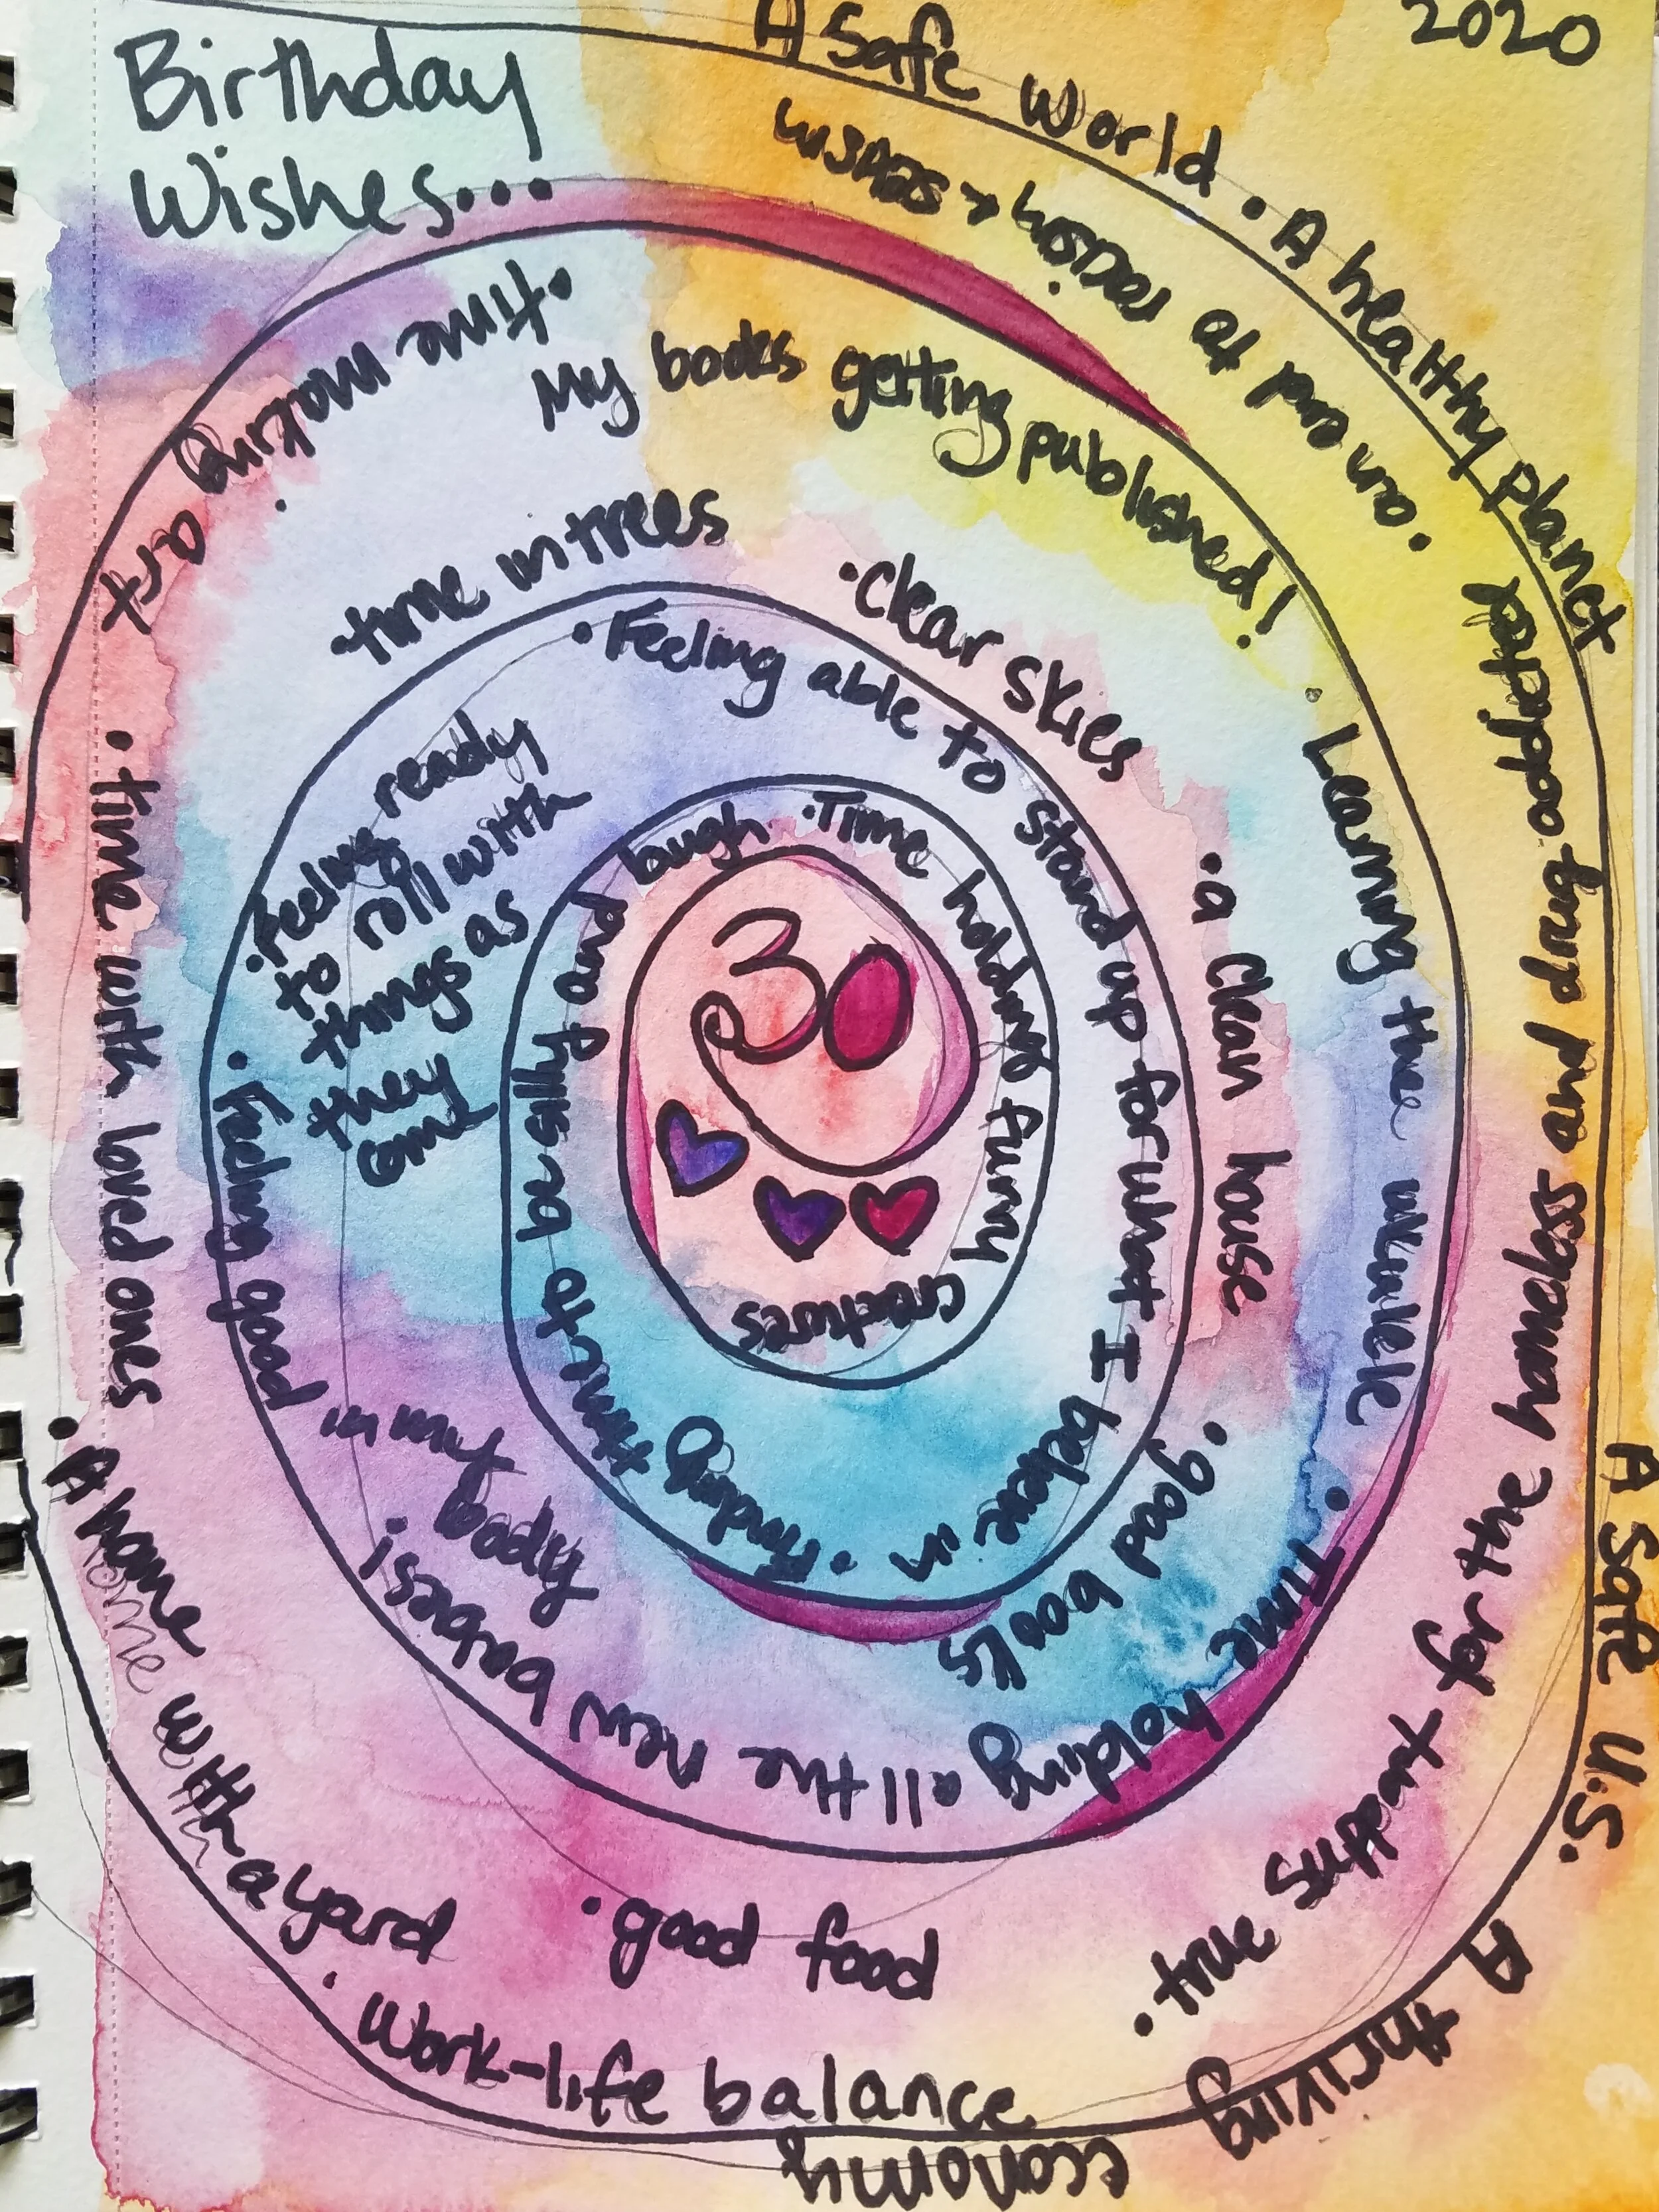 Birthday
Wishes...
2020
A Safe World
• A healthy planet
A safe U.S.
A thriving
economy
• an end to racism + sexism
• true supports for the homeless and drug addicted
• Work-life balance
• good food
• A home with a yard
• time with loved ones
• time making art
My books getting published!
• Learning the ukulele
• Time holding all the new babies!
• feeling good in my body
• Feeling ready
to roll with
things as
they
come
time in trees
• clear skies
• a clean house
• good books
• Feeling able to stand up for what I believe in
• Finding time to be silly and laugh
• Time holding furry creatures
30